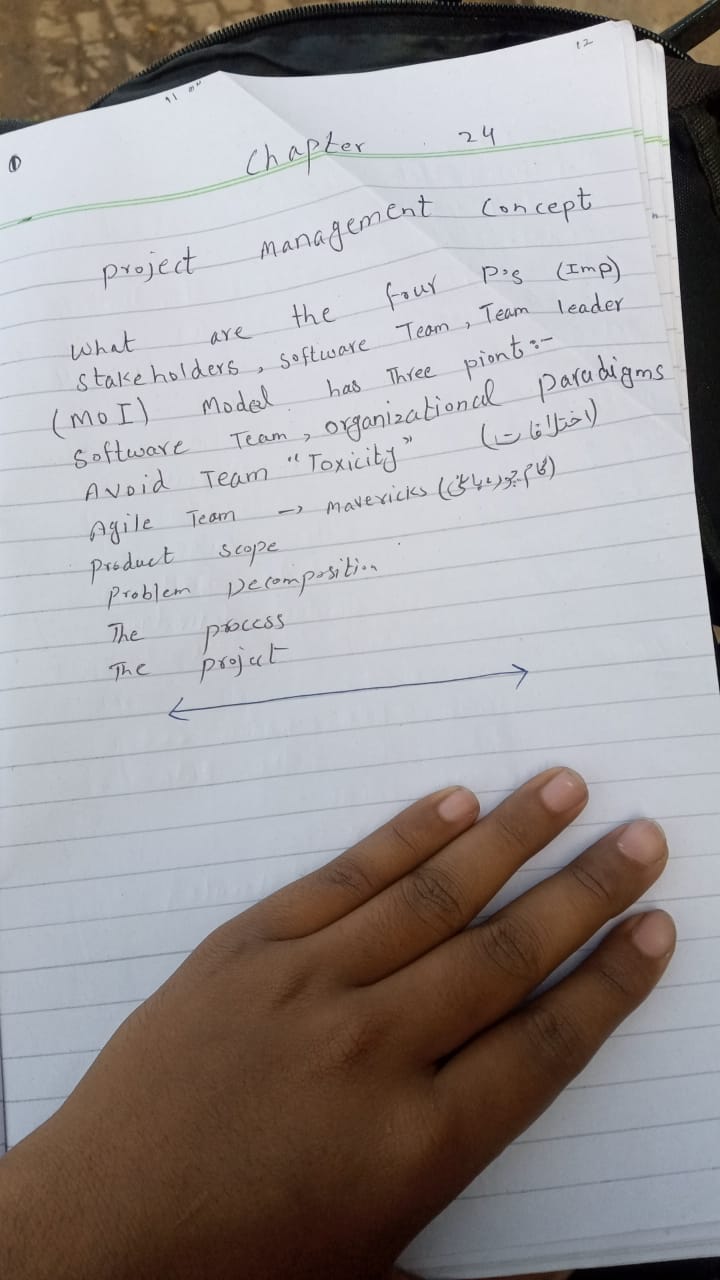 12
Chapter 24
project management Concept
What are the four P's (Imp)
Stakeholders, software Team, Team leader
(MOI) Model has Three piont :-
Software Team, organizational paradigms
Avoid Team "Toxicity" (اختلافات)
Agile Team → mavericks (کام چور
product scope
problem Decomposition
The process
The project